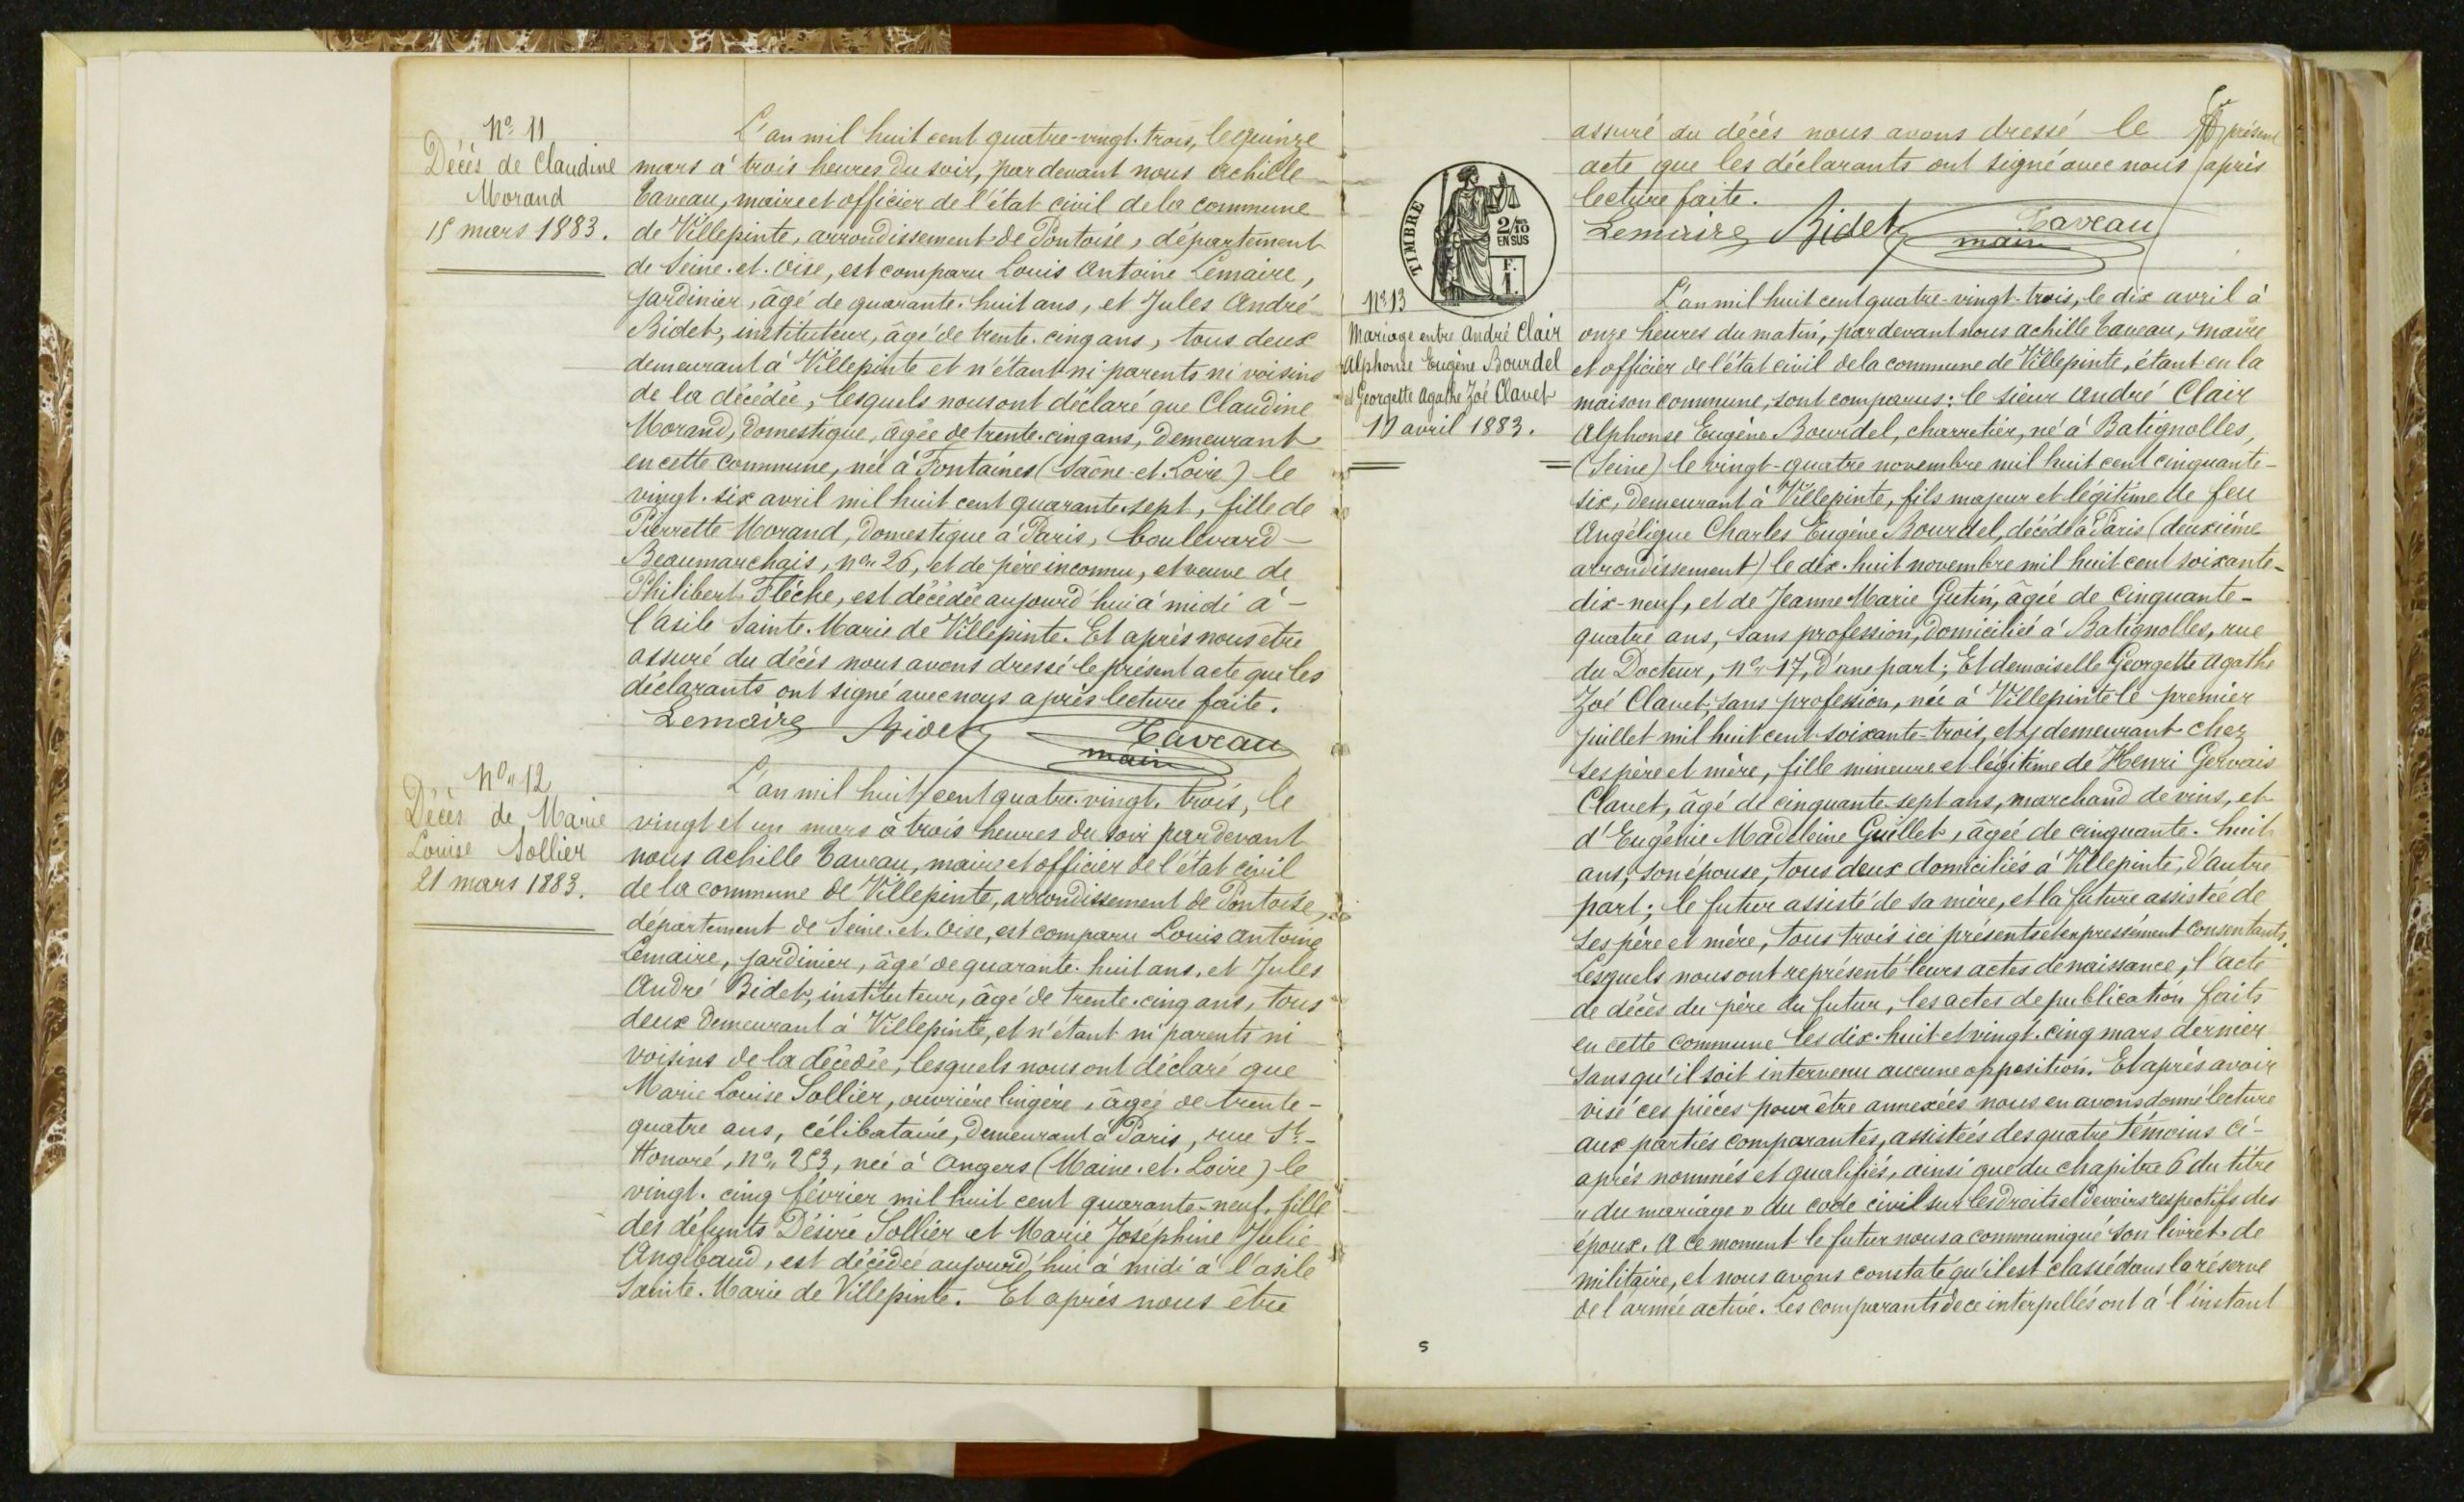 Nº 11
Décès de Claudine
Morand
15 mars 1883.
L'an mil huit cent quatre-vingt-trois, le quinze
mars à trois heures du soir, par devant nous Achille
Taveau, maire et officier de l'état civil de la commune
de Villepinte, arrondissement de Pontoise, département
de Seine-et-Oise, est comparu Louis Antoine Lemaire,
jardinier, âgé de quarante-huit ans, et Jules André
Bidet, instituteur, âgé de trente-cinq ans, tous deux
demeurant à Villepinte et n'étant ni parents ni voisins
de la décédée, lesquels nous ont déclaré que Claudine
Morand, domestique, âgée de trente-cinq ans, demeurant
en cette commune, née à Fontaines (Saône-et-Loire) le
vingt-six avril mil huit cent quarante-sept, fille de
Pierrette Morand, domestique à Paris, boulevard
Beaumarchais, nº 26, et de père inconnu, et veuve de
Philibert Flèche, est décédée aujourd'hui à midi à
l'asile Sainte-Marie de Villepinte. Et après nous être
assuré du décès nous avons dressé le présent acte que les
déclarants ont signé avec nous après lecture faite.
Lemaire Bidet Taveau
maire
Nº 12
Décès de Marie
Louise Sollier
21 mars 1883.
L'an mil huit cent quatre-vingt-trois, le
vingt et un mars à trois heures du soir par devant
nous Achille Taveau, maire et officier de l'état civil
de la commune de Villepinte, arrondissement de Pontoise,
département de Seine-et-Oise, est comparu Louis Antoine
Lemaire, jardinier, âgé de quarante-huit ans, et Jules
André Bidet, instituteur, âgé de trente-cinq ans, tous
deux demeurant à Villepinte, et n'étant ni parents ni
voisins de la décédée, lesquels nous ont déclaré que
Marie Louise Sollier, ouvrière lingère, âgée de trente-
quatre ans, célibataire, demeurant à Paris, rue St-
Honoré, nº 253, née à Angers (Maine-et-Loire) le
vingt-cinq février mil huit cent quarante-neuf, fille
des défunts Désiré Sollier et Marie Joséphine Julie
Angibaud, est décédée aujourd'hui à midi à l'asile
Sainte-Marie de Villepinte. Et après nous être
assuré du décès nous avons dressé le présent
acte que les déclarants ont signé avec nous après
lecture faite.
Lemaire Bidet Taveau
maire
TIMBRE
2/10
EN SUS
F.
1.
Nº 13
Mariage entre André Clair
Alphonse Eugène Bourdel
et Georgette Agathe Zoé Clavet
10 avril 1883.
L'an mil huit cent quatre-vingt-trois, le dix avril à
onze heures du matin, par devant nous Achille Taveau, maire
et officier de l'état civil de la commune de Villepinte, étant en la
maison commune, sont comparus: le sieur André Clair
Alphonse Eugène Bourdel, charretier, né à Batignolles,
(Seine) le vingt-quatre novembre mil huit cent cinquante-
six, demeurant à Villepinte, fils majeur et légitime de feu
Angélique Charles Eugène Bourdel, décédé à Paris (deuxième
arrondissement) le dix-huit novembre mil huit cent soixante-
dix-neuf, et de Jeanne Marie Gutin, âgée de cinquante-
quatre ans, sans profession, domiciliée à Batignolles, rue
du Docteur, nº 17, d'une part; Et demoiselle Georgette Agathe
Zoé Clavet, sans profession, née à Villepinte le premier
juillet mil huit cent soixante-trois, et y demeurant chez
ses père et mère, fille mineure et légitime de Henri Gervais
Clavet, âgé de cinquante-sept ans, marchand de vins, et
d'Eugénie Madeleine Guillet, âgée de cinquante-huit
ans, son épouse, tous deux domiciliés à Villepinte, d'autre
part; le futur assisté de sa mère, et la future assistée de
ses père et mère, tous trois ici présents et expressément consentants.
Lesquels nous ont représenté leurs actes de naissance, l'acte
de décès du père du futur, les actes de publication faits
en cette commune les dix-huit et vingt-cinq mars dernier
sans qu'il soit intervenu aucune opposition. Et après avoir
visé ces pièces pour être annexées nous en avons donné lecture
aux parties comparantes, assistées des quatre témoins ci-
après nommés et qualifiés, ainsi que du chapitre 6 du titre
"du mariage" du code civil sur les droits et devoirs respectifs des
époux. A ce moment le futur nous a communiqué son livret de
militaire, et nous avons constaté qu'il est classé dans la réserve
de l'armée active. Les comparants de ce interpellés ont à l'instant
5